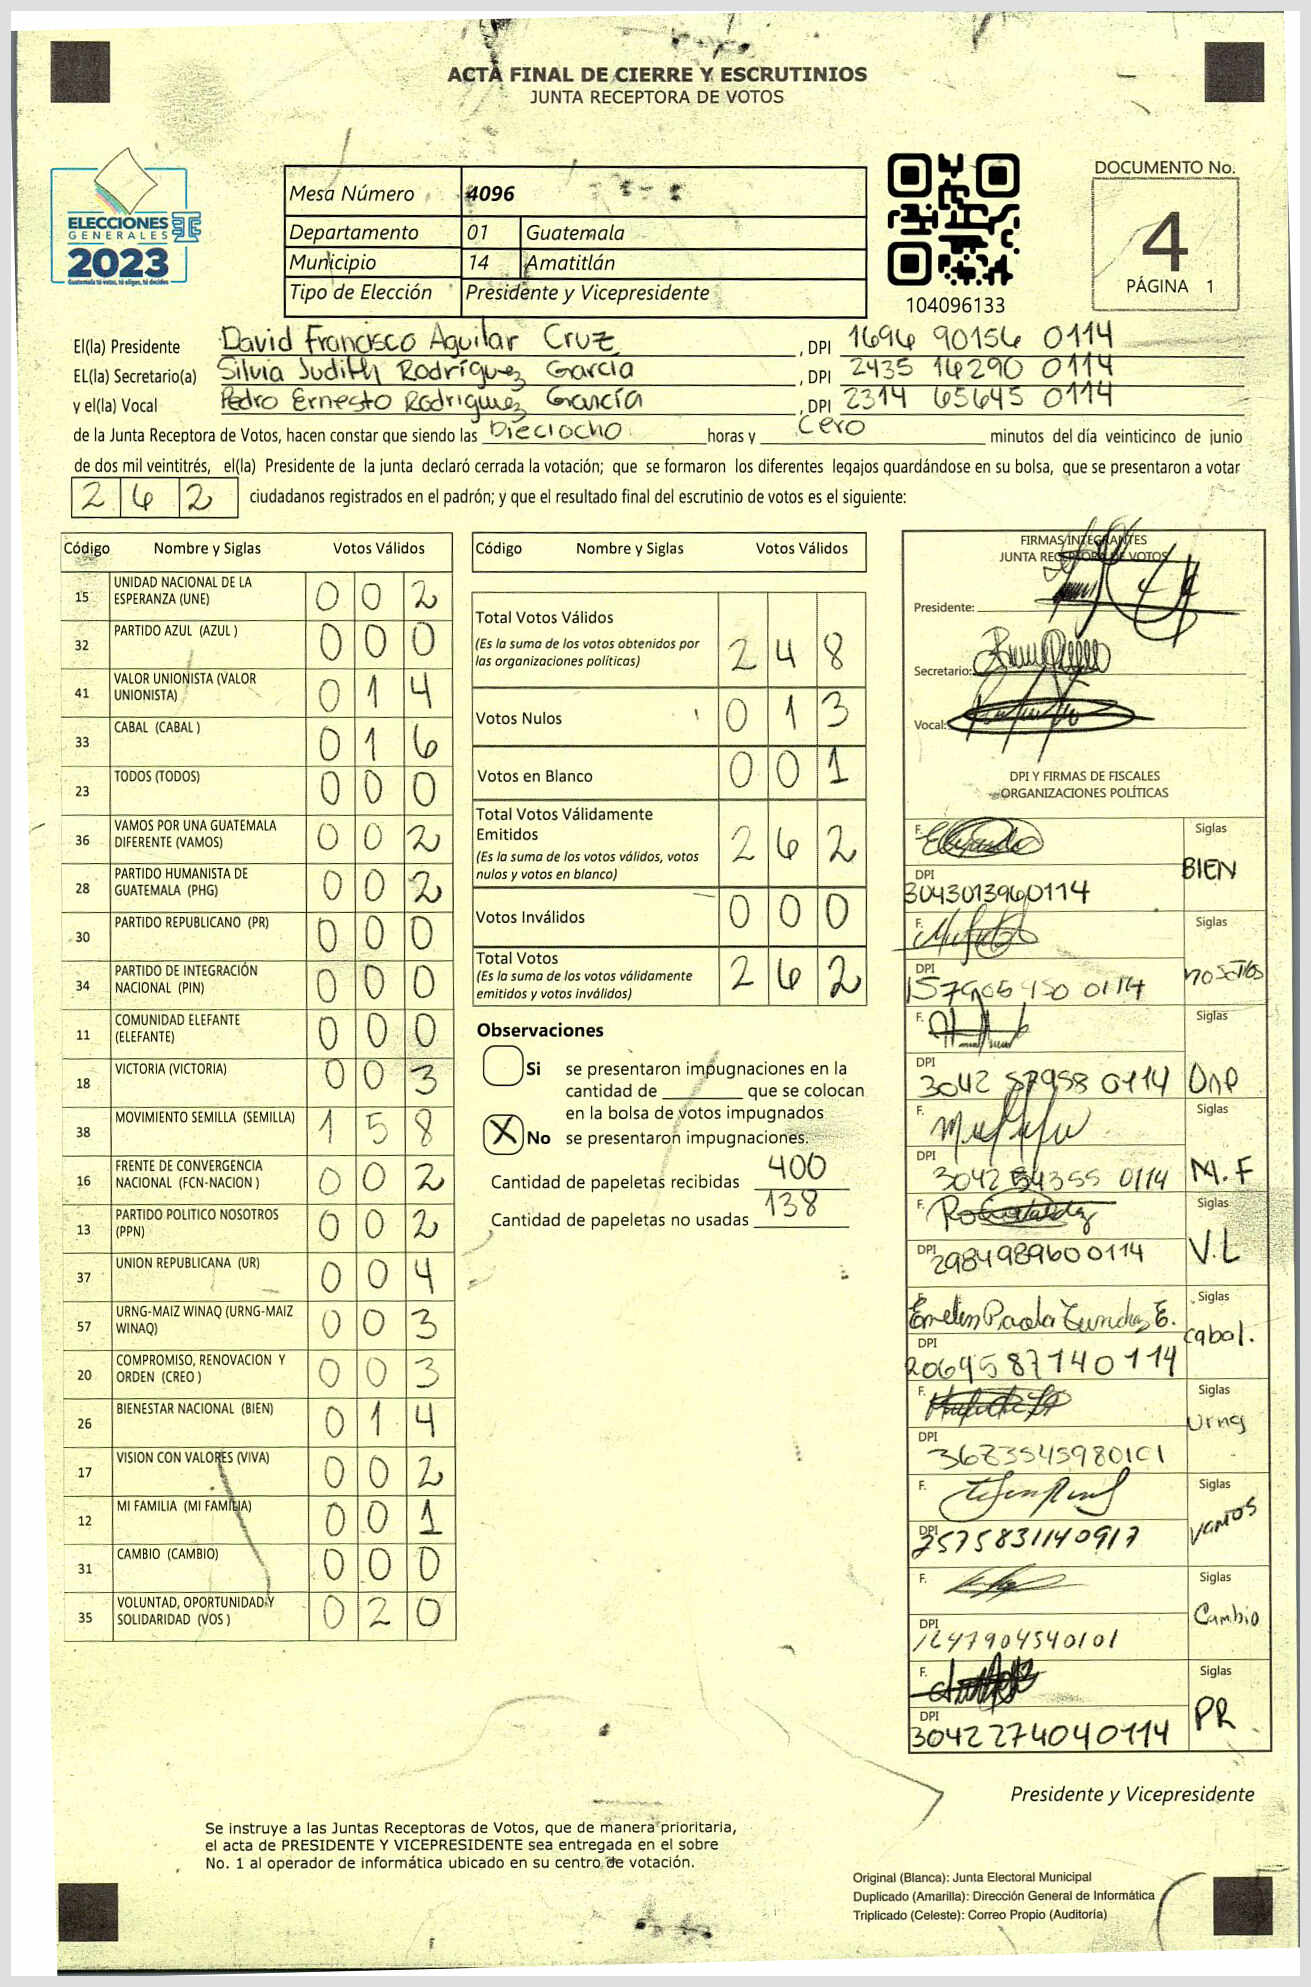 ACTA FINAL DE CIERRE Y ESCRUTINIOS
JUNTA RECEPTORA DE VOTOS
ELECCIONES
GENERALES
2023
Guatemala tú votas, tú eliges, tú decides
Mesa Número 4096
Departamento 01 Guatemala
Municipio 14 Amatitlán
Tipo de Elección Presidente y Vicepresidente
104096133
DOCUMENTO No.
4
PÁGINA 1
El(la) Presidente David Francisco Aguilar Cruz, DPI 1694 90156 0114
EL(la) Secretario(a) Silvia Judith Rodríguez García, DPI 2435 16290 0114
y el(la) Vocal Pedro Ernesto Rodriguez García, DPI 2314 65645 0114
de la Junta Receptora de Votos, hacen constar que siendo las Dieciocho horas y Cero minutos del día veinticinco de junio
de dos mil veintitrés, el(la) Presidente de la junta declaró cerrada la votación; que se formaron los diferentes legajos guardándose en su bolsa, que se presentaron a votar
262 ciudadanos registrados en el padrón; y que el resultado final del escrutinio de votos es el siguiente:
Código Nombre y Siglas Votos Válidos
15 UNIDAD NACIONAL DE LA ESPERANZA (UNE) 002
32 PARTIDO AZUL (AZUL ) 000
41 VALOR UNIONISTA (VALOR UNIONISTA) 014
33 CABAL (CABAL ) 016
23 TODOS (TODOS) 000
36 VAMOS POR UNA GUATEMALA DIFERENTE (VAMOS) 002
28 PARTIDO HUMANISTA DE GUATEMALA (PHG) 002
30 PARTIDO REPUBLICANO (PR) 000
34 PARTIDO DE INTEGRACIÓN NACIONAL (PIN) 000
11 COMUNIDAD ELEFANTE (ELEFANTE) 000
18 VICTORIA (VICTORIA) 003
38 MOVIMIENTO SEMILLA (SEMILLA) 158
16 FRENTE DE CONVERGENCIA NACIONAL (FCN-NACION ) 002
13 PARTIDO POLITICO NOSOTROS (PPN) 002
37 UNION REPUBLICANA (UR) 004
57 URNG-MAIZ WINAQ (URNG-MAIZ WINAQ) 003
20 COMPROMISO, RENOVACION Y ORDEN (CREO ) 003
26 BIENESTAR NACIONAL (BIEN) 014
17 VISION CON VALORES (VIVA) 002
12 MI FAMILIA (MI FAMILIA) 001
31 CAMBIO (CAMBIO) 000
35 VOLUNTAD, OPORTUNIDAD Y SOLIDARIDAD (VOS ) 020
Código Nombre y Siglas Votos Válidos
Total Votos Válidos 248
(Es la suma de los votos obtenidos por
las organizaciones políticas)
Votos Nulos 013
Votos en Blanco 001
Total Votos Válidamente
Emitidos 262
(Es la suma de los votos válidos, votos
nulos y votos en blanco)
Votos Inválidos 000
Total Votos 262
(Es la suma de los votos válidamente
emitidos y votos inválidos)
Observaciones
Si se presentaron impugnaciones en la
cantidad de ________ que se colocan
en la bolsa de votos impugnados
X No se presentaron impugnaciones.
Cantidad de papeletas recibidas 400
Cantidad de papeletas no usadas 138
FIRMAS INTEGRANTES
JUNTA RECEPTORA DE VOTOS
Presidente:
Secretario:
Vocal:
DPI Y FIRMAS DE FISCALES
ORGANIZACIONES POLÍTICAS
F. Siglas BIEN
DPI 3043013960114
F. Siglas nosotros
DPI
F. Siglas
DPI 3042 57958 0114
F. Siglas M.F
DPI 3042 54355 0114
F. Siglas V.L
DPI 2984989600114
F. Siglas cabal.
DPI 2069587140114
F. Siglas Urng
DPI 3623545980101
F. Siglas VAMOS
DPI 2575831140917
F. Siglas Cambio
DPI 1247904540101
F. Siglas PR
DPI 3042274040114
Presidente y Vicepresidente
Se instruye a las Juntas Receptoras de Votos, que de manera prioritaria,
el acta de PRESIDENTE Y VICEPRESIDENTE sea entregada en el sobre
No. 1 al operador de informática ubicado en su centro de votación.
Original (Blanca): Junta Electoral Municipal
Duplicado (Amarilla): Dirección General de Informática
Triplicado (Celeste): Correo Propio (Auditoría)